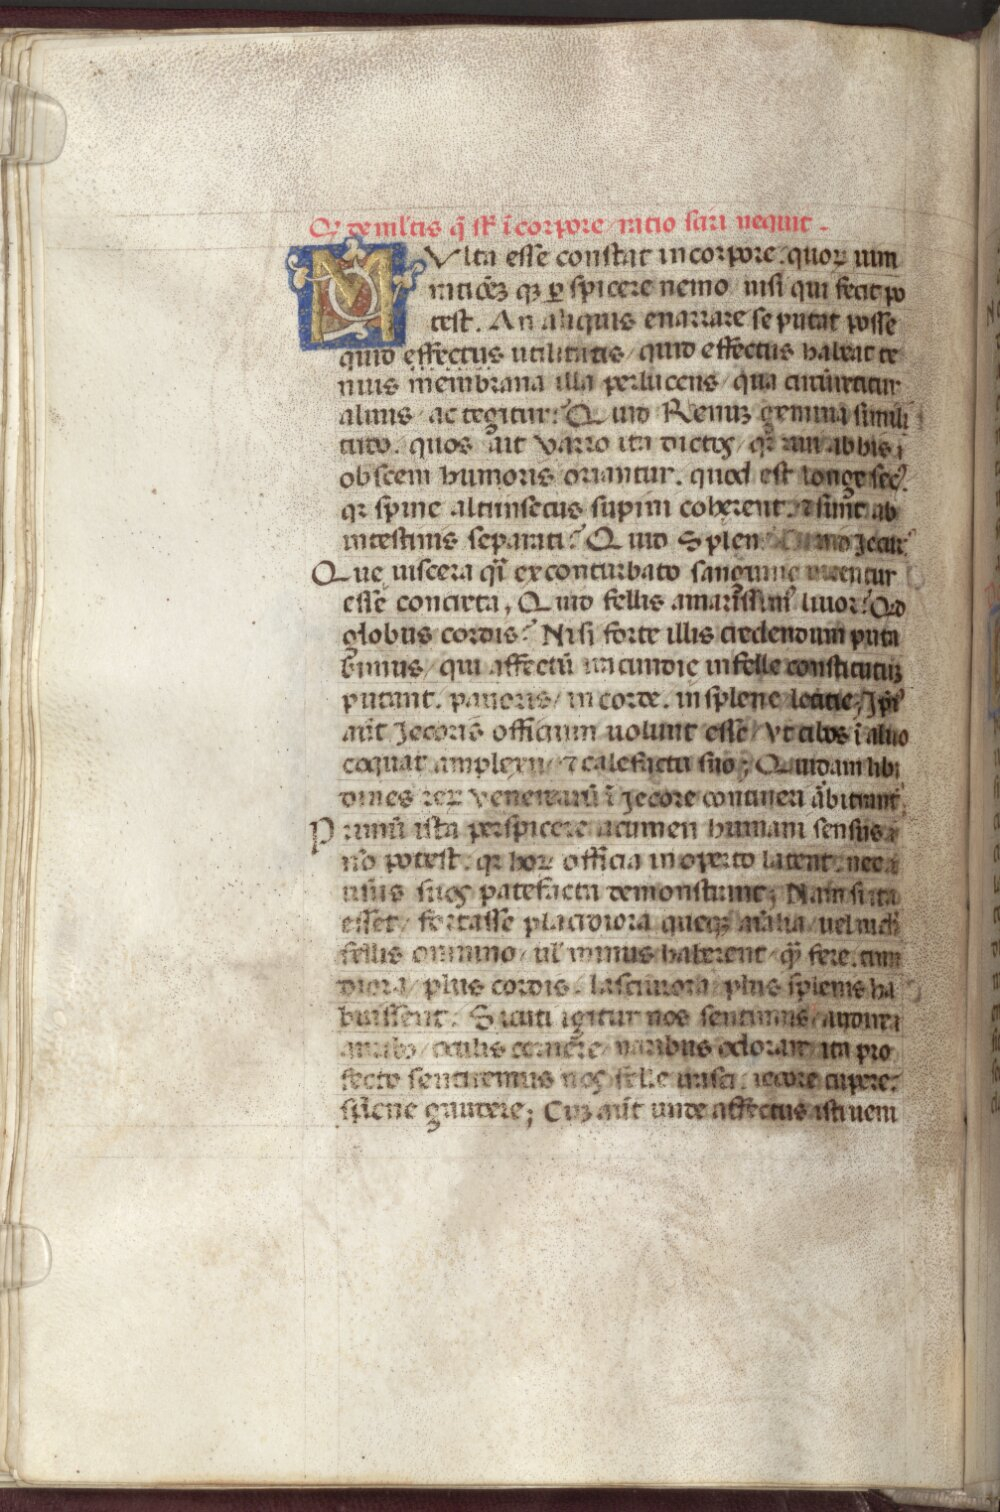 Q de mltis q̃ st̃ ĩ corpore ratio sciri nequit .
MVlta esse constat in corpore . quoꝝ uim
rationẽqꝫ ꝑspicere nemo nisi qui fecit po
test . An aliquis enarrare se putat posse
quid effectus utilitatis / quid effectus habeat te
nuis membrana illa perlucens / qua circũretitur
aluus ac tegitur ? Quid Renuꝫ gemina simili
tudo . quos ait varro ita dictos / qꝛ riui ab his
obsceni humoris oriantur . quod est longe sec⁹.
qꝛ spine altrinsecus supini coherent . ⁊ sunt ab
intestinis separati ? Quid Splen Quid Jecur
Que uiscera q̃i ex conturbato sanguine uidentur
esse concreta , Quid fellis amarissim⁹ liuor ? Qd
globus cordis ? Nisi forte illis credendum puta
bimus / qui affectũ iracundię in felle constitutuꝫ
putant . pauoris / in corde . in splene letitie / Ip̃i⁹
aũt Jecoris officium uolunt esse / vt cibos ĩ aluo
coquat amplexu ⁊ calefactu suo ; Quidam libi
dines reꝝ venerearũ ĩ Jecore contineri ãbitrant̃
Primũ ista perspicere acumen humani sensus
nõ potest . qꝛ hoꝝ officia in operto latent . nec
usus suos patefacta demonstrant ; Nam si ita
esset / fortasse placidiora queqꝫ aĩalia / uel nich̃
fellis omnino / ul̃ minus haberent / q̃ fere . timi
diora / plus cordis . lasciuiora / plus splenis ha
buissent . Sicuti igitur nos sentimus / audire
aurib⁹ / oculis cernẽre / naribus odorari / ita pro
fecto sentiremus nos felle irasci . iecore cupere .
splene gaudere ; Cuꝫ aũt unde affectus isti ueni